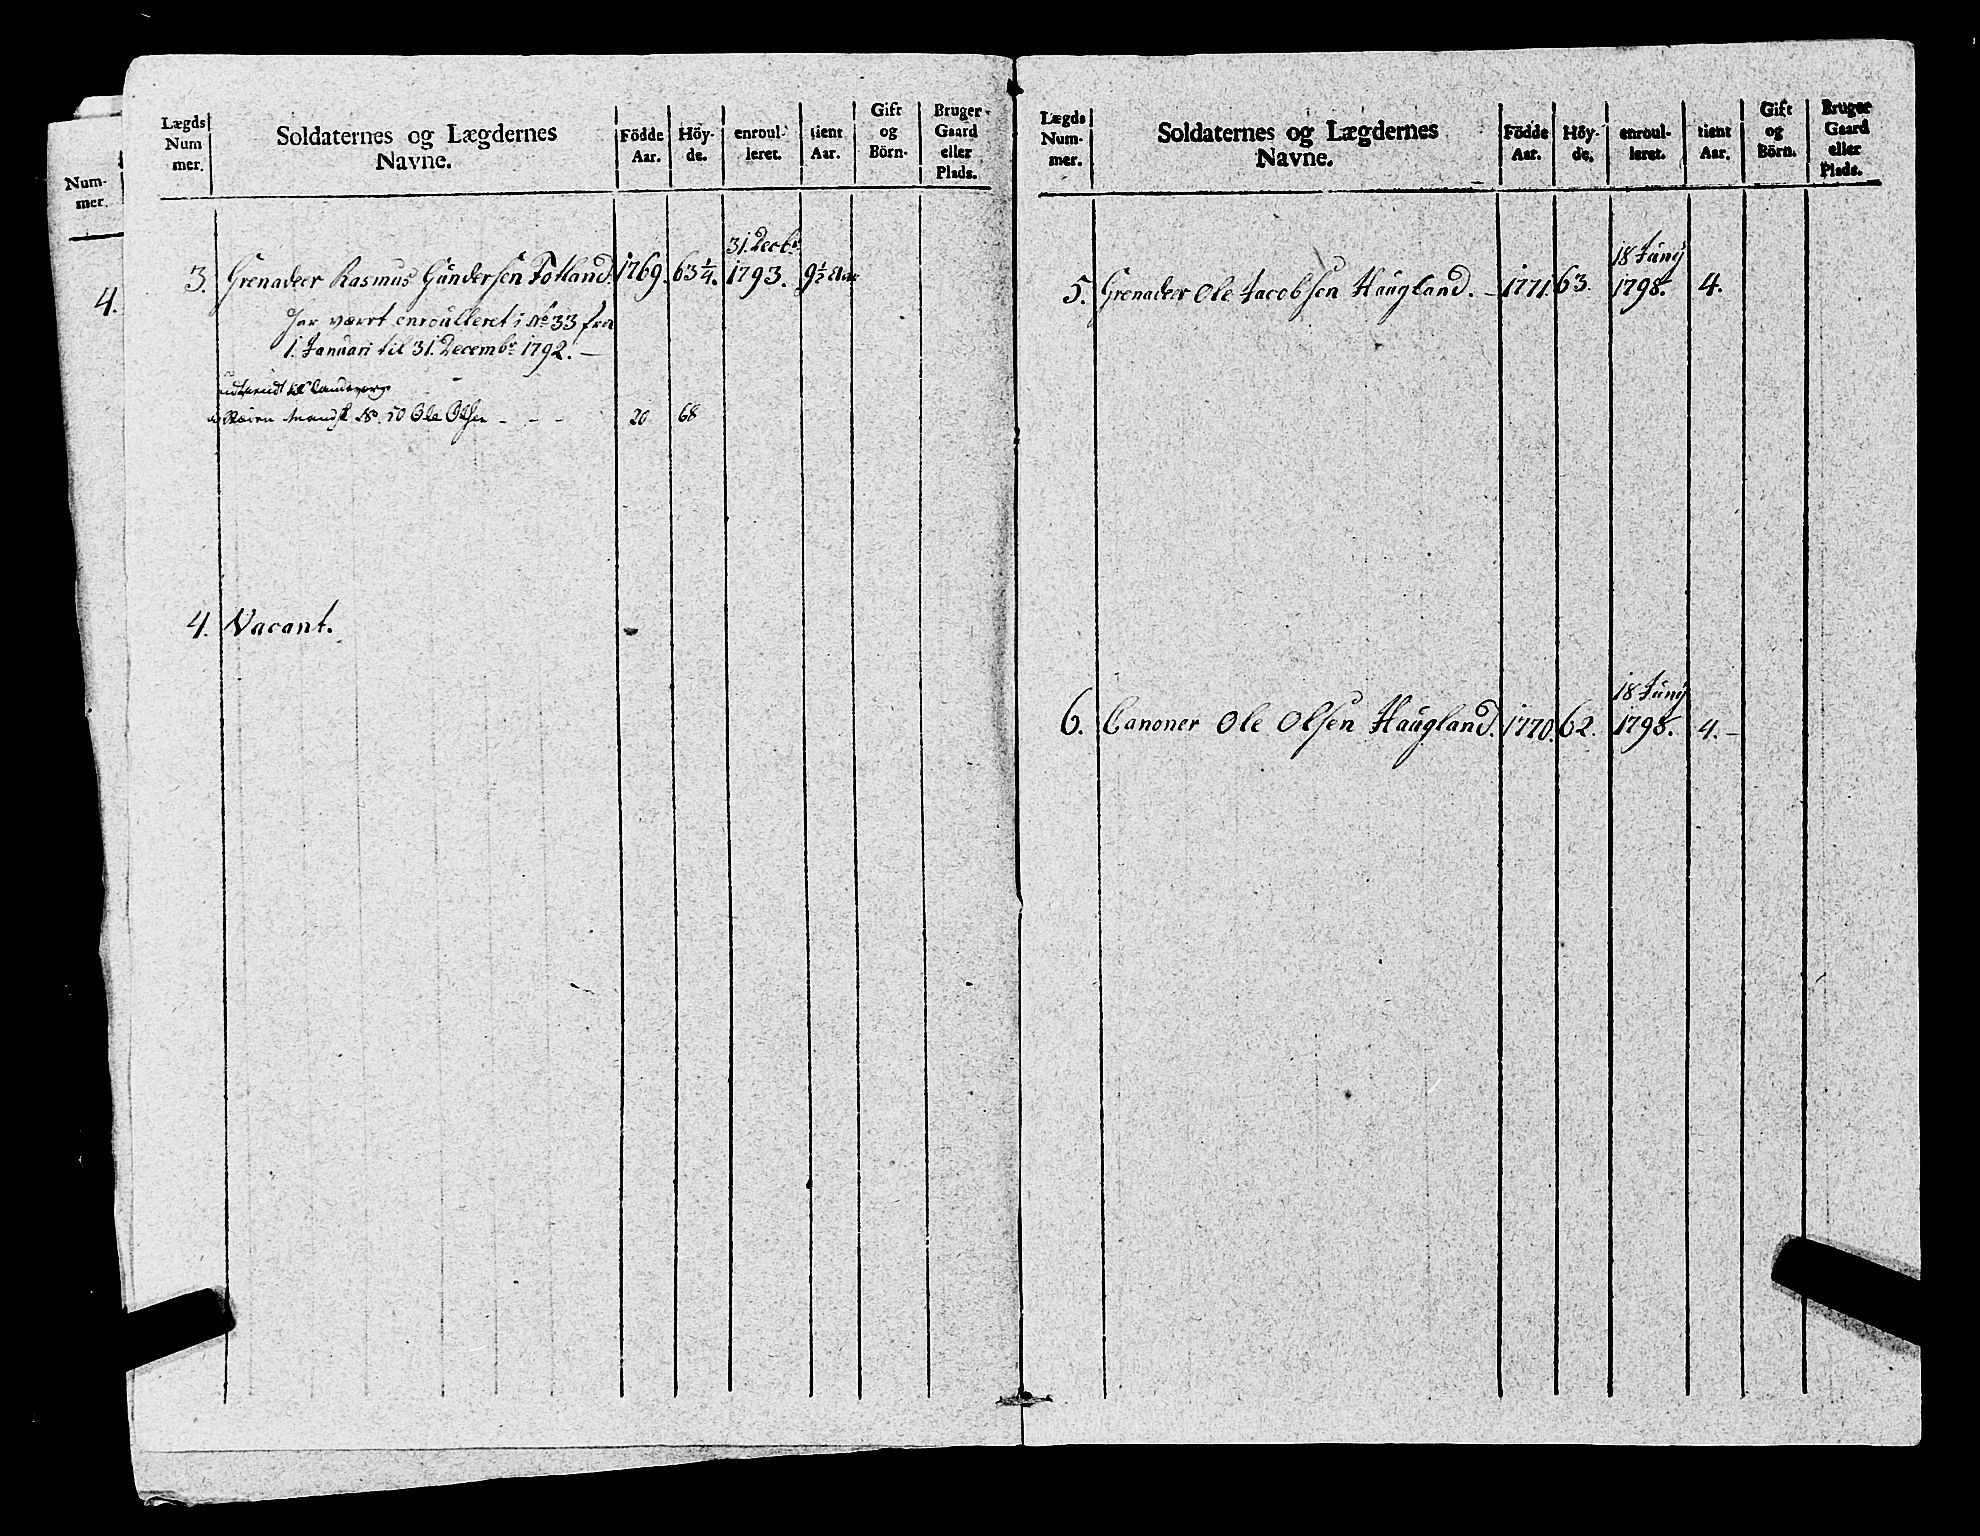 Num-
mer.
4.
Lægds
Num
mer.
Soldaternes og Lægdernes
Navne.
Födde
Aar.
Höy-
de.
enroul-
leret.
tient
Aar.
Gift
og
Börn.
Bruger-
Gaard
eller
Plads.
31. Decbr
3. Grenadeer Rasmus Gundersen Totland. 1769. 63 1/4. 1793. 9 1/2 Aar
har været enroulleret i No 33 fra
1. Januari til 31. Decembr 1792. —
til
No. 50 Ole Olsen - - - 20 68
4. Vacant.
Lægds
Num-
mer.
Soldaternes og Lægdernes
Navne.
Födde
Aar.
Höy-
de.
enroul-
leret.
tient
Aar.
Gift
og
Börn.
Bruger
Gaard
eller
Plads.
18 Juny
5. Grenadeer Ole Jacobsen Haugland. - 1771. 63. 1798. 4.
18 Juny
6. Canoner Ole Olsen Haugland. 1770. 62. 1798. 4. -